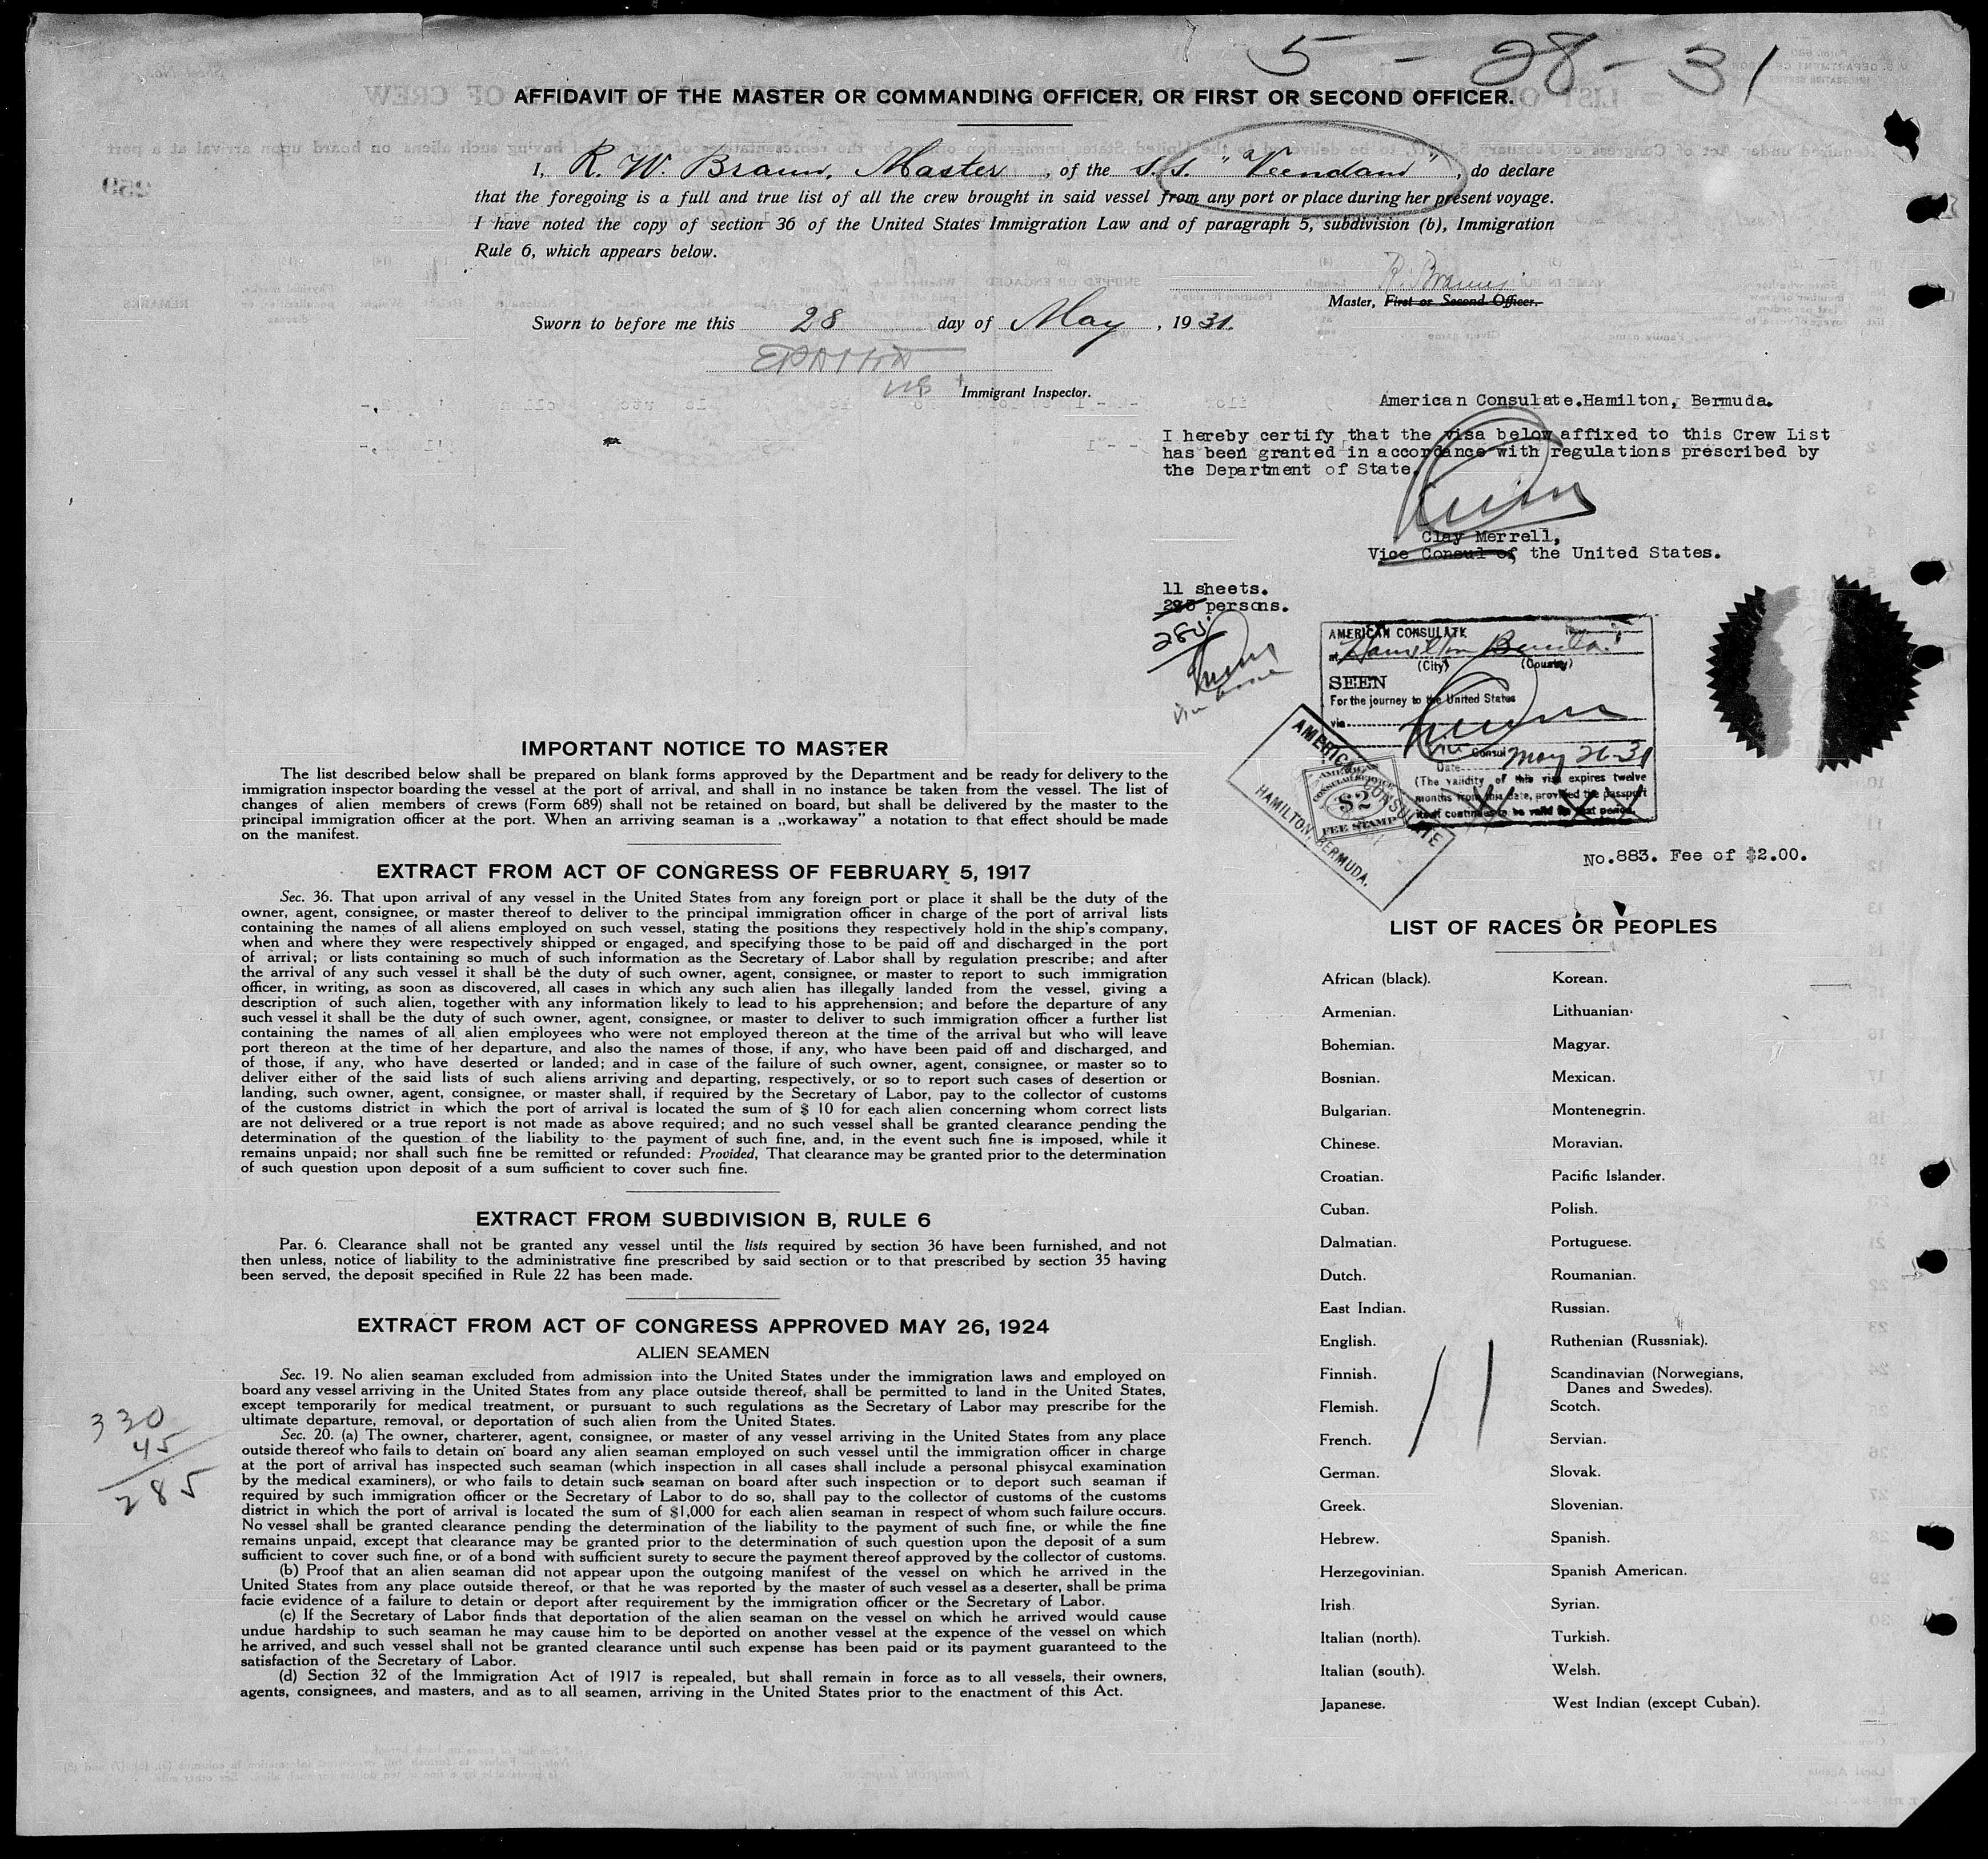 5 - 28 - 31
AFFIDAVIT OF THE MASTER OR COMMANDING OFFICER, OR FIRST OR SECOND OFFICER.
I, R. W. Braun, Master, of the S.S. "Veendam", do declare
that the foregoing is a full and true list of all the crew brought in said vessel from any port or place during her present voyage.
I have noted the copy of section 36 of the United States Immigration Law and of paragraph 5, subdivision (b), Immigration
Rule 6, which appears below.
Master, First or Second Officer.
Sworn to before me this 28 day of May, 1931.
Immigrant Inspector.
American Consulate.Hamilton, Bermuda.
I hereby certify that the visa below affixed to this Crew List
has been granted in accordance with regulations prescribed by
the Department of State.
Clay Merrell,
Vice Consul of the United States.
11 sheets.
persons.
285
AMERICAN CONSULATE
at Hamilton Bermuda
(City) (Country)
SEEN
For the journey to the United States
via
Consul
Date May 26-31
(The validity of this visa expires twelve
months from this date, provided the passport
itself continues to be valid for that period.
AMERICAN CONSULATE
HAMILTON, BERMUDA.
AMERICAN
CONSULAR SERVICE
$2
FEE STAMP
No.883. Fee of $2.00.
IMPORTANT NOTICE TO MASTER
The list described below shall be prepared on blank forms approved by the Department and be ready for delivery to the
immigration inspector boarding the vessel at the port of arrival, and shall in no instance be taken from the vessel. The list of
changes of alien members of crews (Form 689) shall not be retained on board, but shall be delivered by the master to the
principal immigration officer at the port. When an arriving seaman is a „workaway” a notation to that effect should be made
on the manifest.
EXTRACT FROM ACT OF CONGRESS OF FEBRUARY 5, 1917
Sec. 36. That upon arrival of any vessel in the United States from any foreign port or place it shall be the duty of the
owner, agent, consignee, or master thereof to deliver to the principal immigration officer in charge of the port of arrival lists
containing the names of all aliens employed on such vessel, stating the positions they respectively hold in the ship's company,
when and where they were respectively shipped or engaged, and specifying those to be paid off and discharged in the port
of arrival; or lists containing so much of such information as the Secretary of Labor shall by regulation prescribe; and after
the arrival of any such vessel it shall be the duty of such owner, agent, consignee, or master to report to such immigration
officer, in writing, as soon as discovered, all cases in which any such alien has illegally landed from the vessel, giving a
description of such alien, together with any information likely to lead to his apprehension; and before the departure of any
such vessel it shall be the duty of such owner, agent, consignee, or master to deliver to such immigration officer a further list
containing the names of all alien employees who were not employed thereon at the time of the arrival but who will leave
port thereon at the time of her departure, and also the names of those, if any, who have been paid off and discharged, and
of those, if any, who have deserted or landed; and in case of the failure of such owner, agent, consignee, or master so to
deliver either of the said lists of such aliens arriving and departing, respectively, or so to report such cases of desertion or
landing, such owner, agent, consignee, or master shall, if required by the Secretary of Labor, pay to the collector of customs
of the customs district in which the port of arrival is located the sum of $ 10 for each alien concerning whom correct lists
are not delivered or a true report is not made as above required; and no such vessel shall be granted clearance pending the
determination of the question of the liability to the payment of such fine, and, in the event such fine is imposed, while it
remains unpaid; nor shall such fine be remitted or refunded: Provided, That clearance may be granted prior to the determination
of such question upon deposit of a sum sufficient to cover such fine.
EXTRACT FROM SUBDIVISION B, RULE 6
Par. 6. Clearance shall not be granted any vessel until the lists required by section 36 have been furnished, and not
then unless, notice of liability to the administrative fine prescribed by said section or to that prescribed by section 35 having
been served, the deposit specified in Rule 22 has been made.
EXTRACT FROM ACT OF CONGRESS APPROVED MAY 26, 1924
ALIEN SEAMEN
Sec. 19. No alien seaman excluded from admission into the United States under the immigration laws and employed on
board any vessel arriving in the United States from any place outside thereof, shall be permitted to land in the United States,
except temporarily for medical treatment, or pursuant to such regulations as the Secretary of Labor may prescribe for the
ultimate departure, removal, or deportation of such alien from the United States.
Sec. 20. (a) The owner, charterer, agent, consignee, or master of any vessel arriving in the United States from any place
outside thereof who fails to detain on board any alien seaman employed on such vessel until the immigration officer in charge
at the port of arrival has inspected such seaman (which inspection in all cases shall include a personal phisycal examination
by the medical examiners), or who fails to detain such seaman on board after such inspection or to deport such seaman if
required by such immigration officer or the Secretary of Labor to do so, shall pay to the collector of customs of the customs
district in which the port of arrival is located the sum of $1,000 for each alien seaman in respect of whom such failure occurs.
No vessel shall be granted clearance pending the determination of the liability to the payment of such fine, or while the fine
remains unpaid, except that clearance may be granted prior to the determination of such question upon the deposit of a sum
sufficient to cover such fine, or of a bond with sufficient surety to secure the payment thereof approved by the collector of customs.
(b) Proof that an alien seaman did not appear upon the outgoing manifest of the vessel on which he arrived in the
United States from any place outside thereof, or that he was reported by the master of such vessel as a deserter, shall be prima
facie evidence of a failure to detain or deport after requirement by the immigration officer or the Secretary of Labor.
(c) If the Secretary of Labor finds that deportation of the alien seaman on the vessel on which he arrived would cause
undue hardship to such seaman he may cause him to be deported on another vessel at the expence of the vessel on which
he arrived, and such vessel shall not be granted clearance until such expense has been paid or its payment guaranteed to the
satisfaction of the Secretary of Labor.
(d) Section 32 of the Immigration Act of 1917 is repealed, but shall remain in force as to all vessels, their owners,
agents, consignees, and masters, and as to all seamen, arriving in the United States prior to the enactment of this Act.
330
45
285
LIST OF RACES OR PEOPLES
African (black). Korean.
Armenian. Lithuanian.
Bohemian. Magyar.
Bosnian. Mexican.
Bulgarian. Montenegrin.
Chinese. Moravian.
Croatian. Pacific Islander.
Cuban. Polish.
Dalmatian. Portuguese.
Dutch. Roumanian.
East Indian. Russian.
English. Ruthenian (Russniak).
Finnish. Scandinavian (Norwegians,
Danes and Swedes).
Flemish. Scotch.
French. Servian.
German. Slovak.
Greek. Slovenian.
Hebrew. Spanish.
Herzegovinian. Spanish American.
Irish. Syrian.
Italian (north). Turkish.
Italian (south). Welsh.
Japanese. West Indian (except Cuban).
11